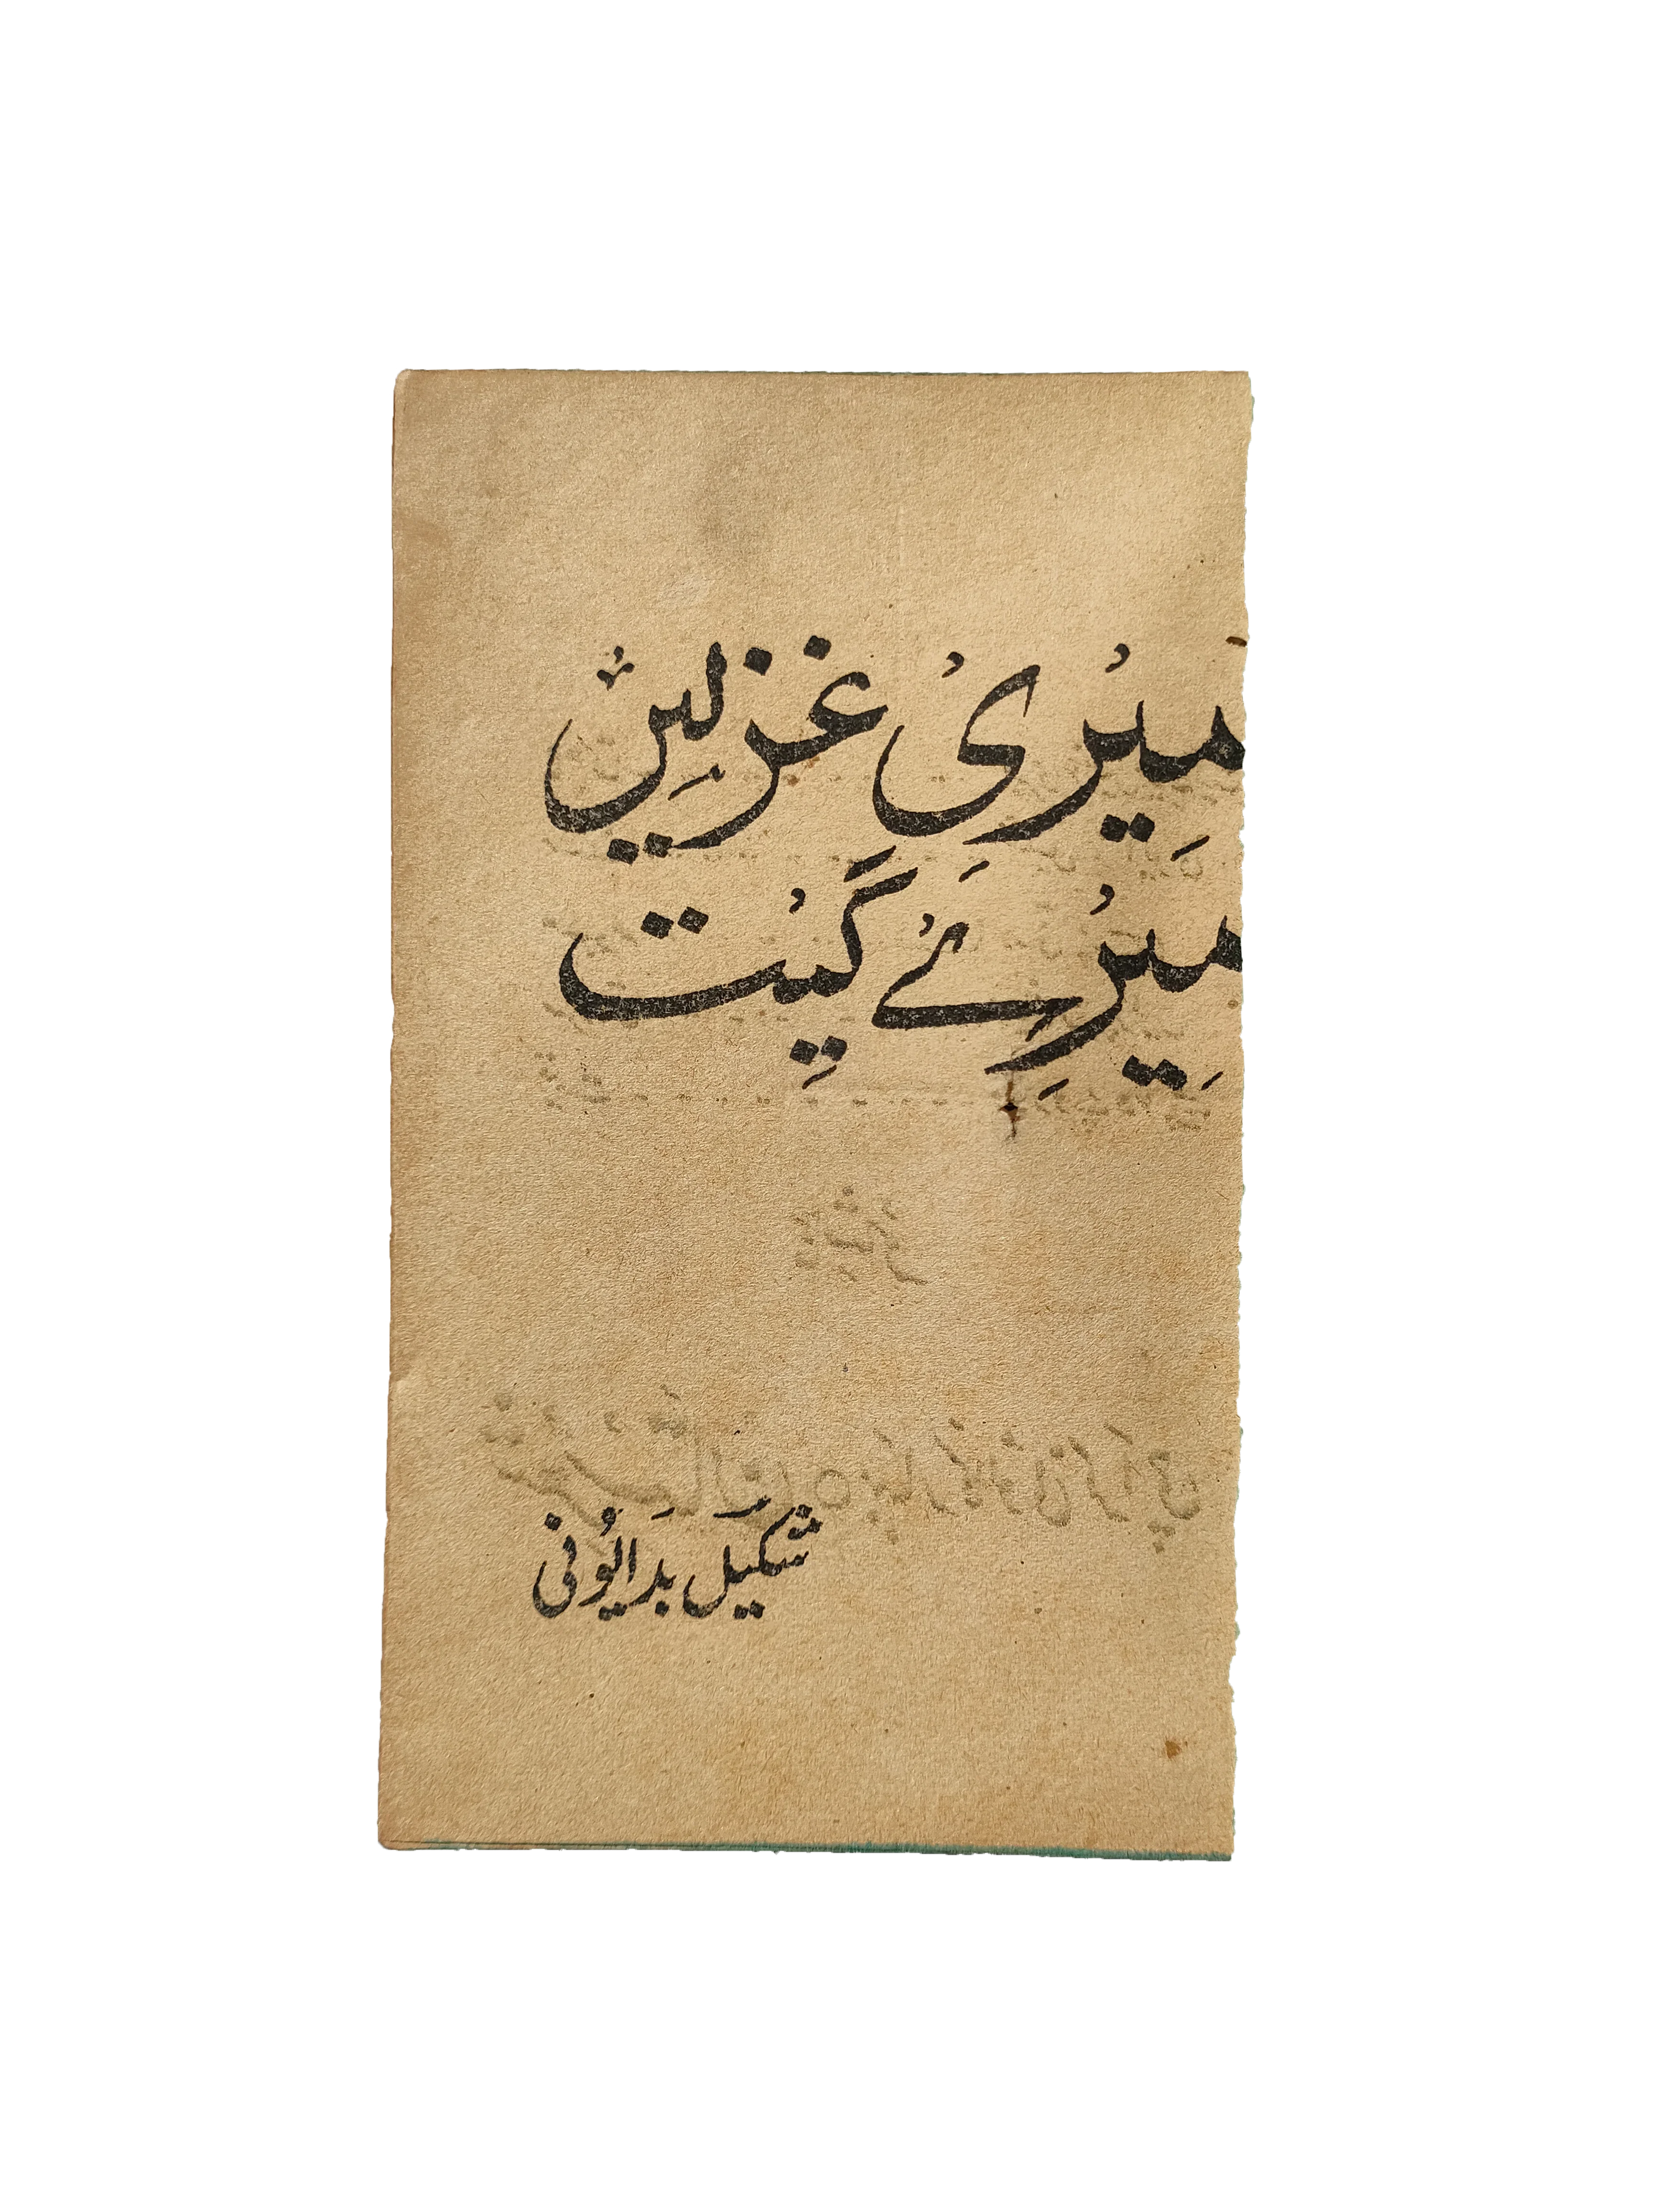 میری غزلیں
میرے گیت
شکیل بدایونی